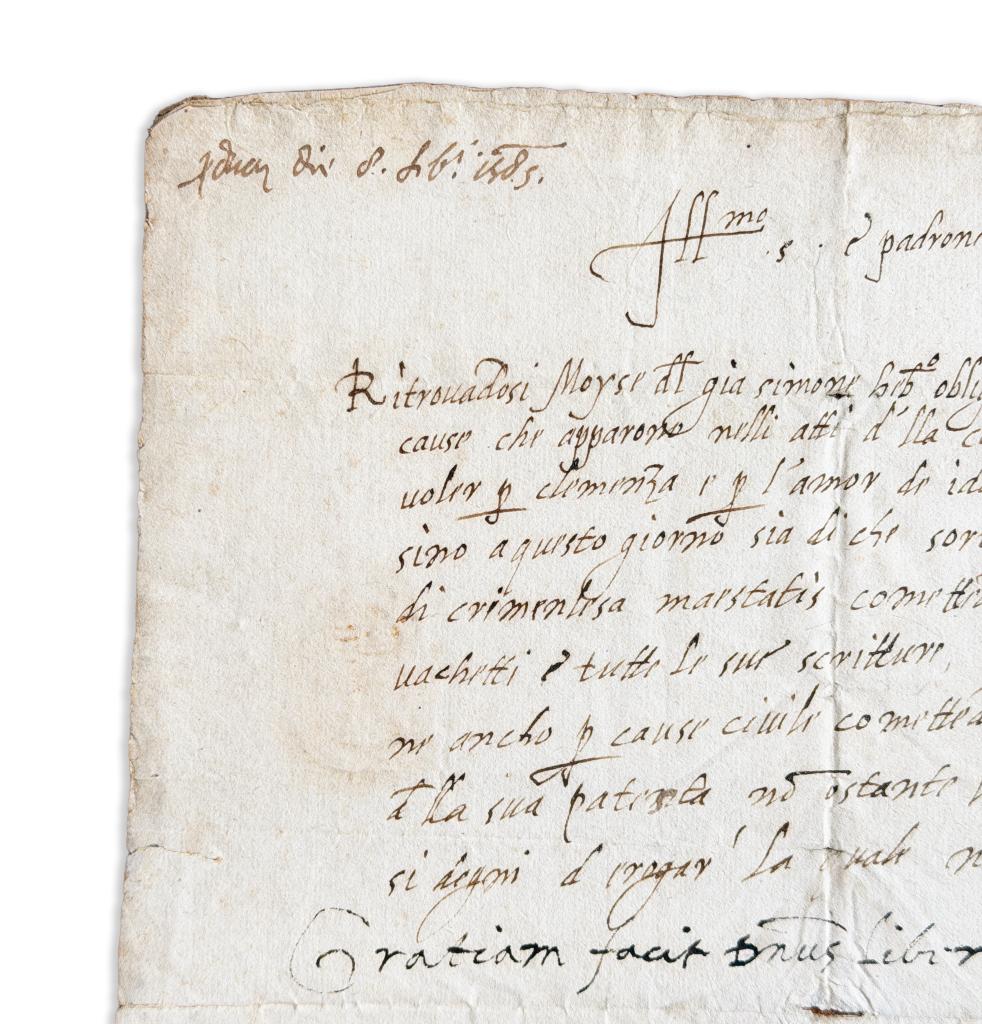 die 8. 1585.
Ill mo s. e padron
Ritrouadosi Moyse dl gia simone heb o oblig
cause che apparono nelli atti d'lla c
voler p clemenza e p l'amor de id
sino a questo giorno sia di che sor
di crimenlesa maestatis comette
vachetti e tutte le sue scritture,
ne ancho p cause ciuile comette
d lla sua patente nō ostante
si degni d erogar' la quale n
Gratiam facit Dnus liber